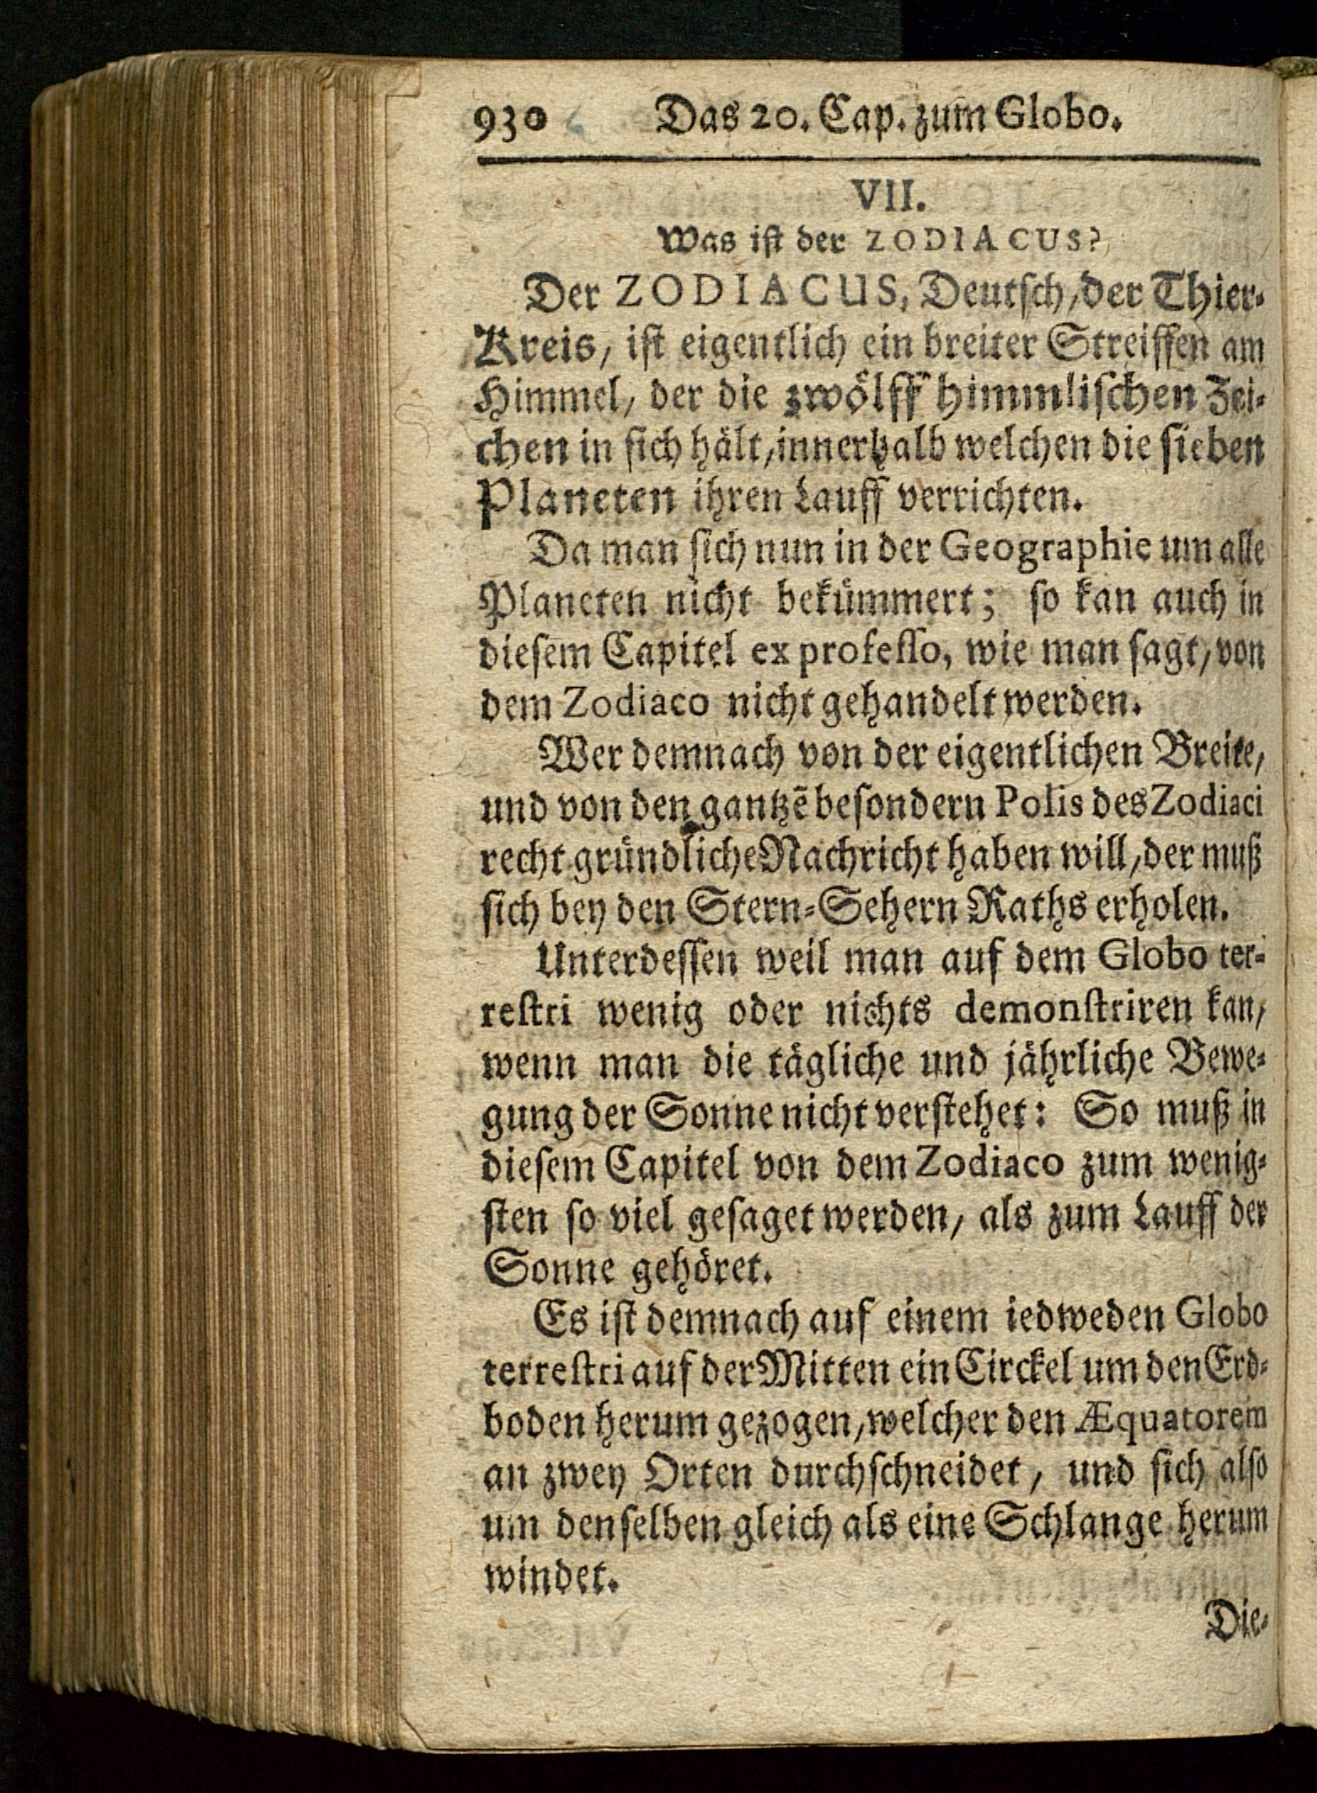 930 Das 20. Cap. zum Globo.
VII.
Was ist der ZODIACUS?
Der ZODIACUS, Deutsch/ der Thier-
Kreis, ist eigentlich ein breiter Streiffen am
Himmel, der die zwölff himmlischen Zei-
chen in sich hält, innerhalb welchen die sieben
Planeten ihren Lauff verrichten.
Da man sich nun in der Geographie um alle
Planeten nicht bekümmert; so kan auch in
diesem Capitel ex professo, wie man sagt, von
dem Zodiaco nicht gehandelt werden.
Wer demnach von der eigentlichen Breite,
und von den gantzē besondern Polis des Zodiaci
recht gründliche Nachricht haben will, der muß
sich bey den Stern-Sehern Raths erholen.
Unterdessen weil man auf dem Globo ter-
restri wenig oder nichts demonstriren kan,
wenn man die tägliche und jährliche Bewe-
gung der Sonne nicht verstehet: So muß in
diesem Capitel von dem Zodiaco zum wenig-
sten so viel gesaget werden, als zum Lauff der
Sonne gehöret.
Es ist demnach auf einem iedweden Globo
terrestri auf der Mitten ein Circkel um den Erd-
boden herum gezogen, welcher den Æquatorem
an zwey Orten durchschneidet, und sich also
um denselben gleich als eine Schlange herum
windet.
Die-